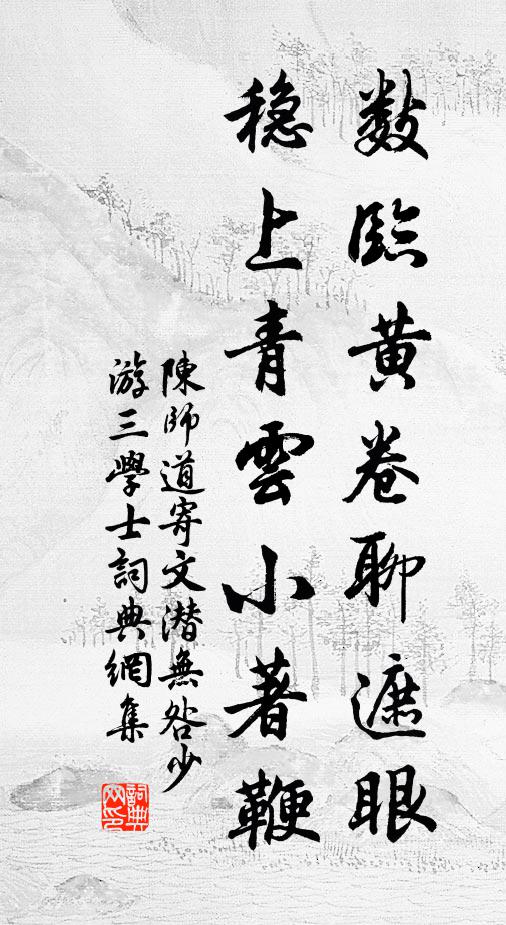 数臨黄卷聊遮眼
穩上青雲小著鞭
陳師道寄文潛無咎少
游三學士詞典網集
詞典網印